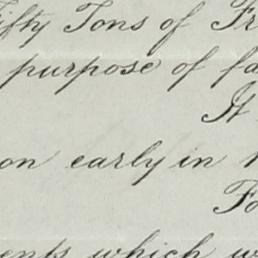 ifty Tons of Fr
purpose of fa
It
on early in
Fo
ents which w